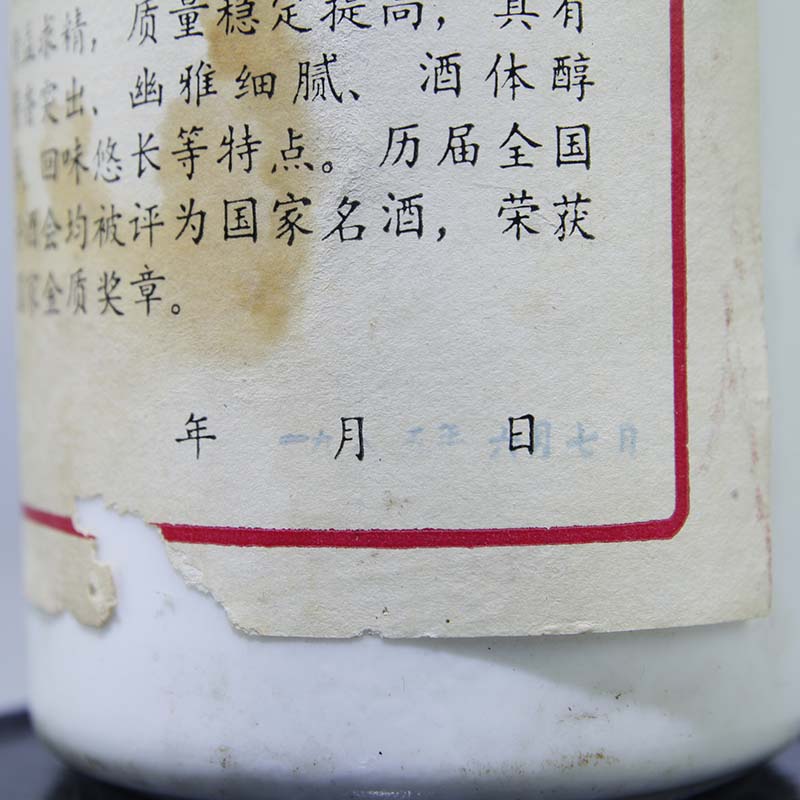 益求精，质量稳定提高，具有
突出、幽雅细腻、酒体醇
回味悠长等特点。历届全国
酒会均被评为国家名酒，荣获
国家金质奖章。
年 月 日
一九八 年 六月七日